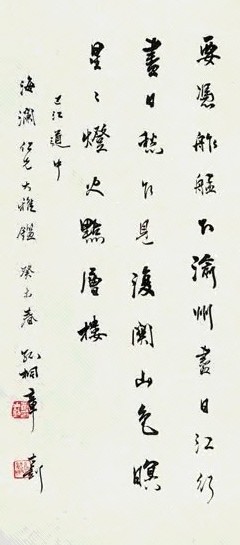 要憑舴艋下渝州盡日江行
盡日愁不見復関山色暝
星〻燈火點層樓
江道中
海瀾仁兄大雅鑑 癸未春 孤桐章士釗